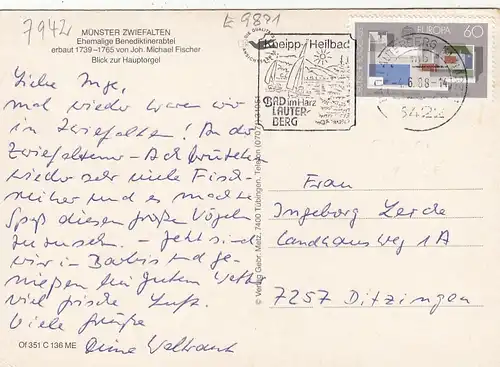 7942
E 9871
MÜNSTER ZWIEFALTEN
Ehemalige Benediktinerabtei
erbaut 1739–1765 von Joh. Michael Fischer
Blick zur Hauptorgel
Liebe Inge,
mal wieder waren wir
in Zwiefalten! An der
Zwiefaltener-Ach brüteten
wieder sehr viele Fisch-
reiher und es machte
Spaß diesen großen Vögeln
zuzusehen. – Jetzt sind
wir in Barbis und ge-
nießen bei gutem Wetter
viel frische Luft.
Viele Grüße
Deine Waltraut
Of 351 C 136 ME
© Verlag Gebr. Metz, 7400 Tübingen, Telefon (07071)
Kneipp-Heilbad
BAD im Harz
LAUTER-
BERG
EUROPA
60
6.88-14
3422
Frau
Ingeborg Zerde
Landhausweg 1A
7257 Ditzingen